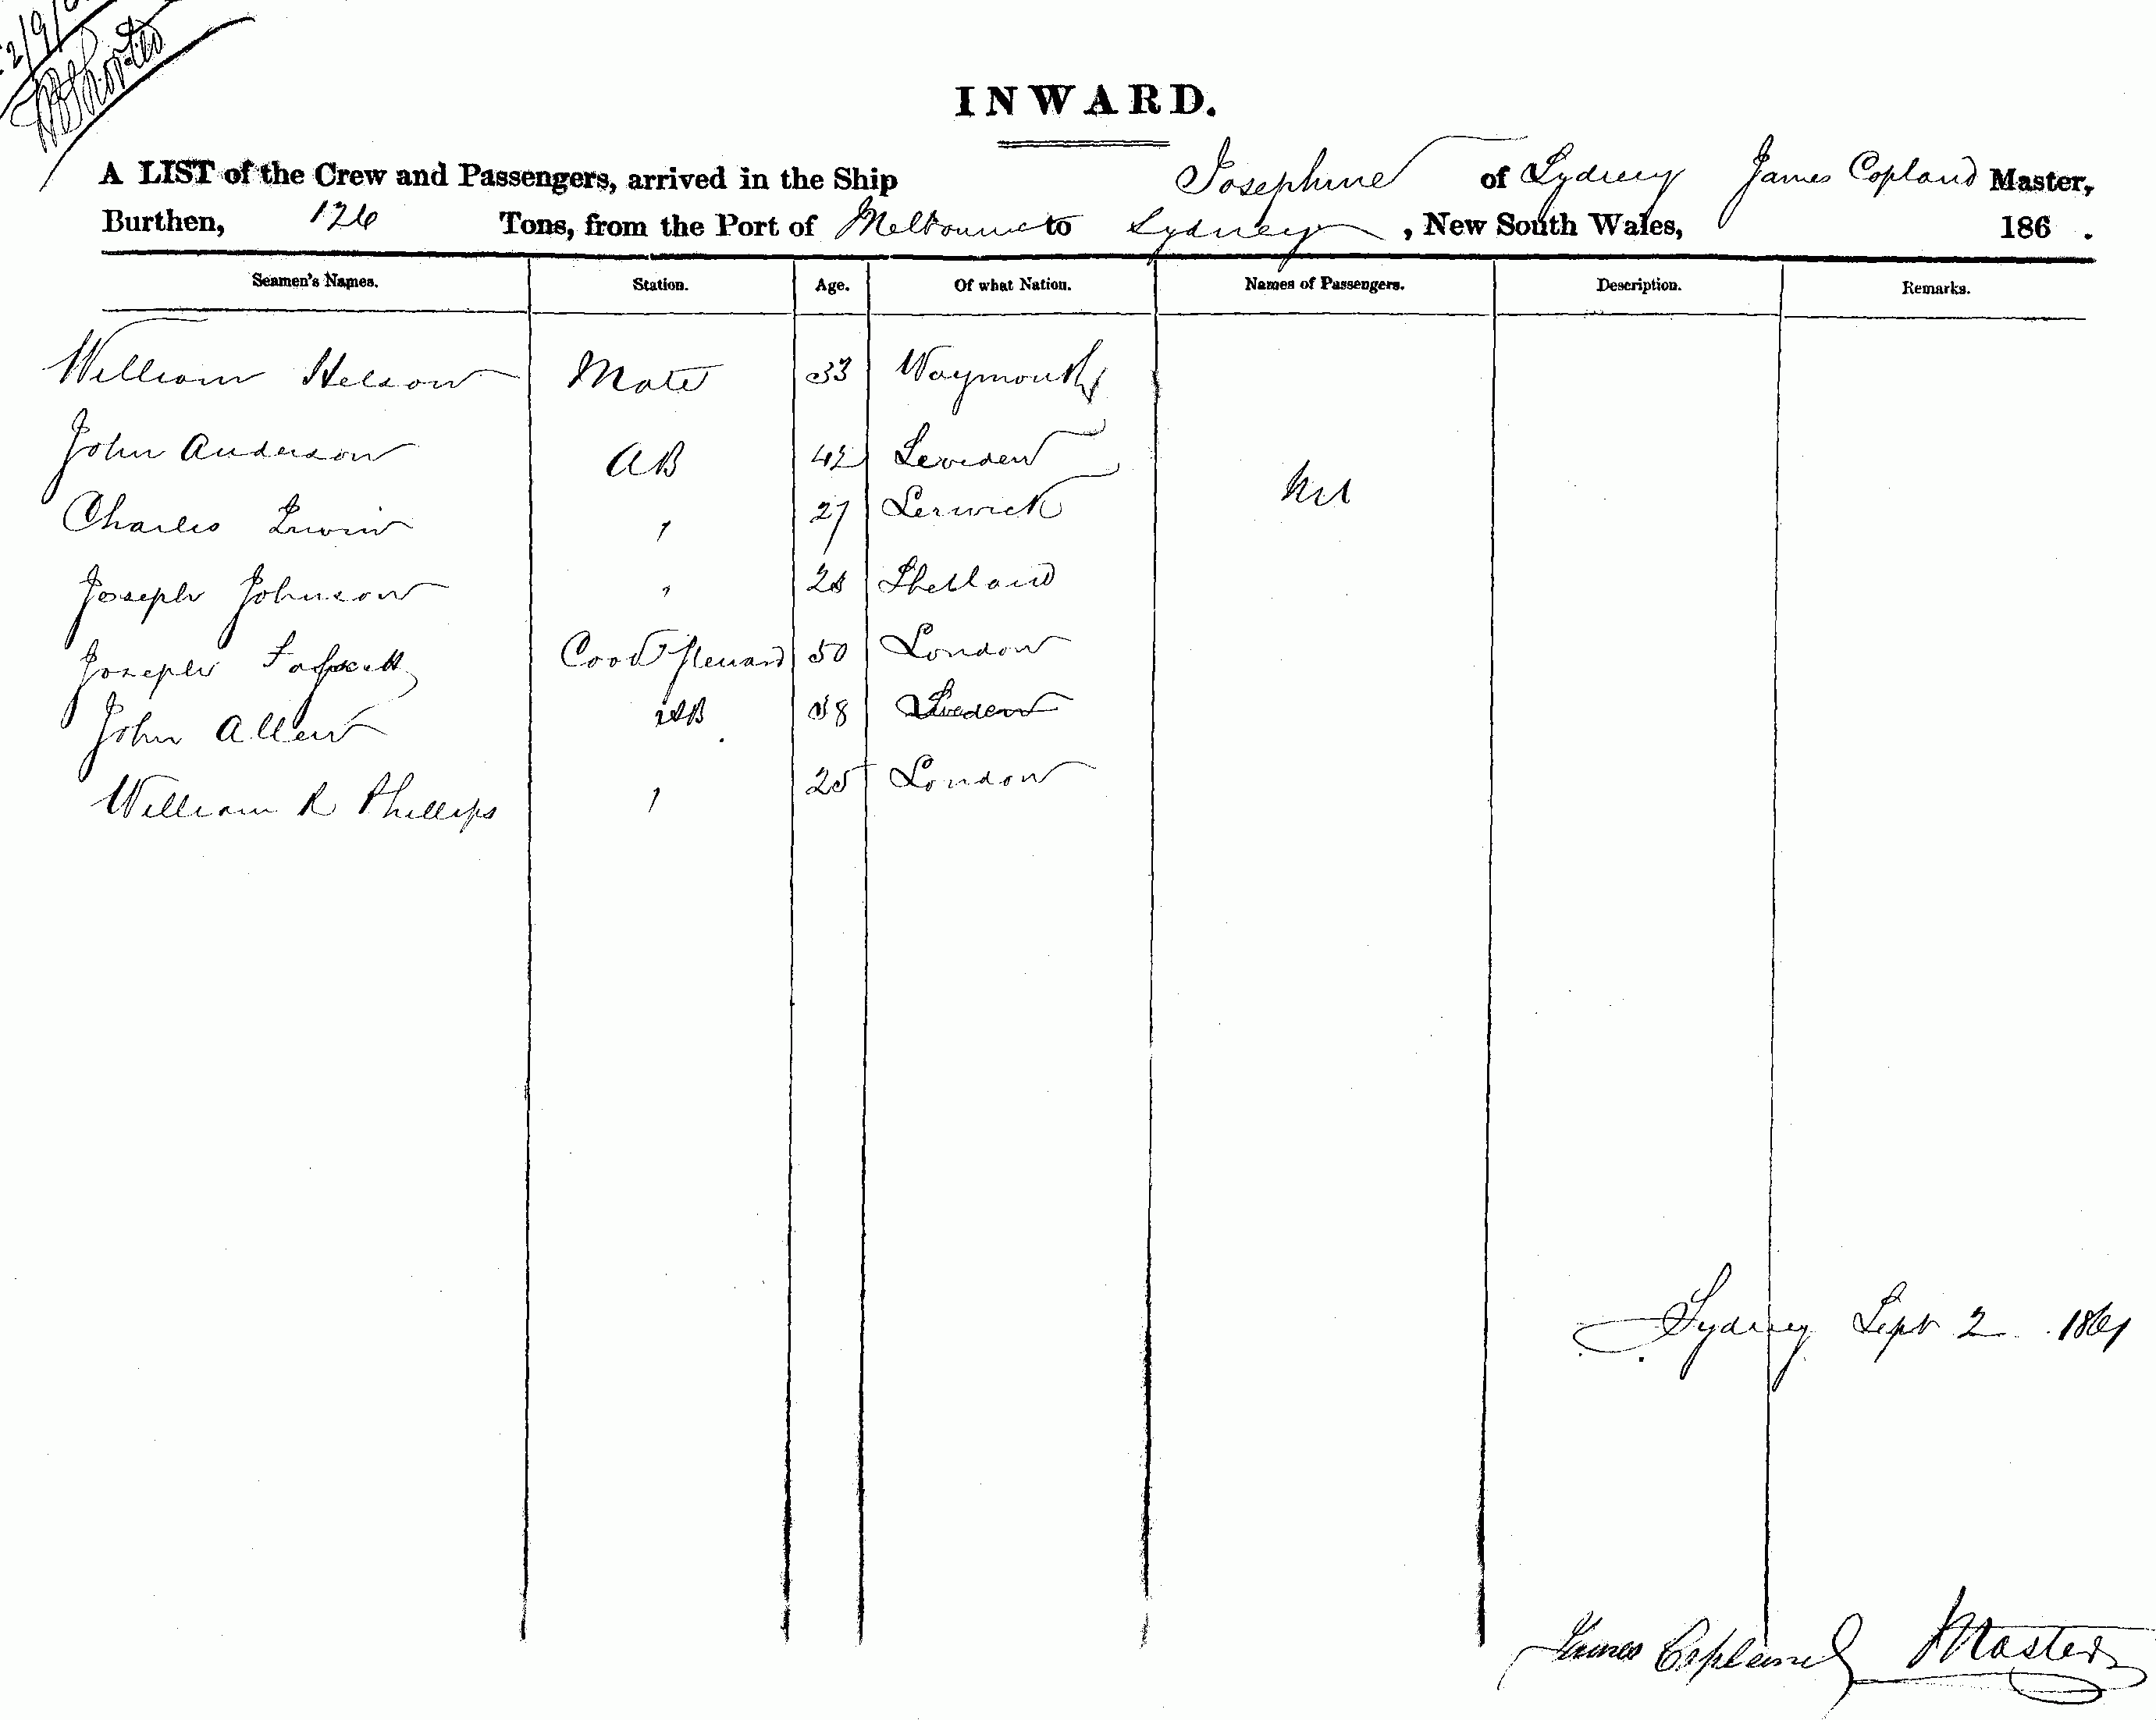 2/9/61
INWARD.
A LIST of the Crew and Passengers, arrived in the Ship Josephine of Sydney James Copland Master,
Burthen, 126 Tons, from the Port of Melbourne to Sydney, New South Wales, 186 .
Seamen's Names. Station. Age. Of what Nation. Names of Passengers. Description. Remarks.
William Nelson Mate 33 Waymouth
John Anderson AB 42 Sweden
Nil
Charles Irwin " 27 Lerwick
Joseph Johnson " 28 Shetland
Joseph Cook Steward 50 London
John Allen AB 38 Sweden
William R Phillips " 25 London
Sydney Sept 2 1861
James Copland Master